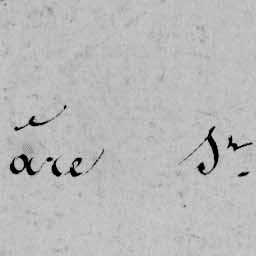 are Sr.